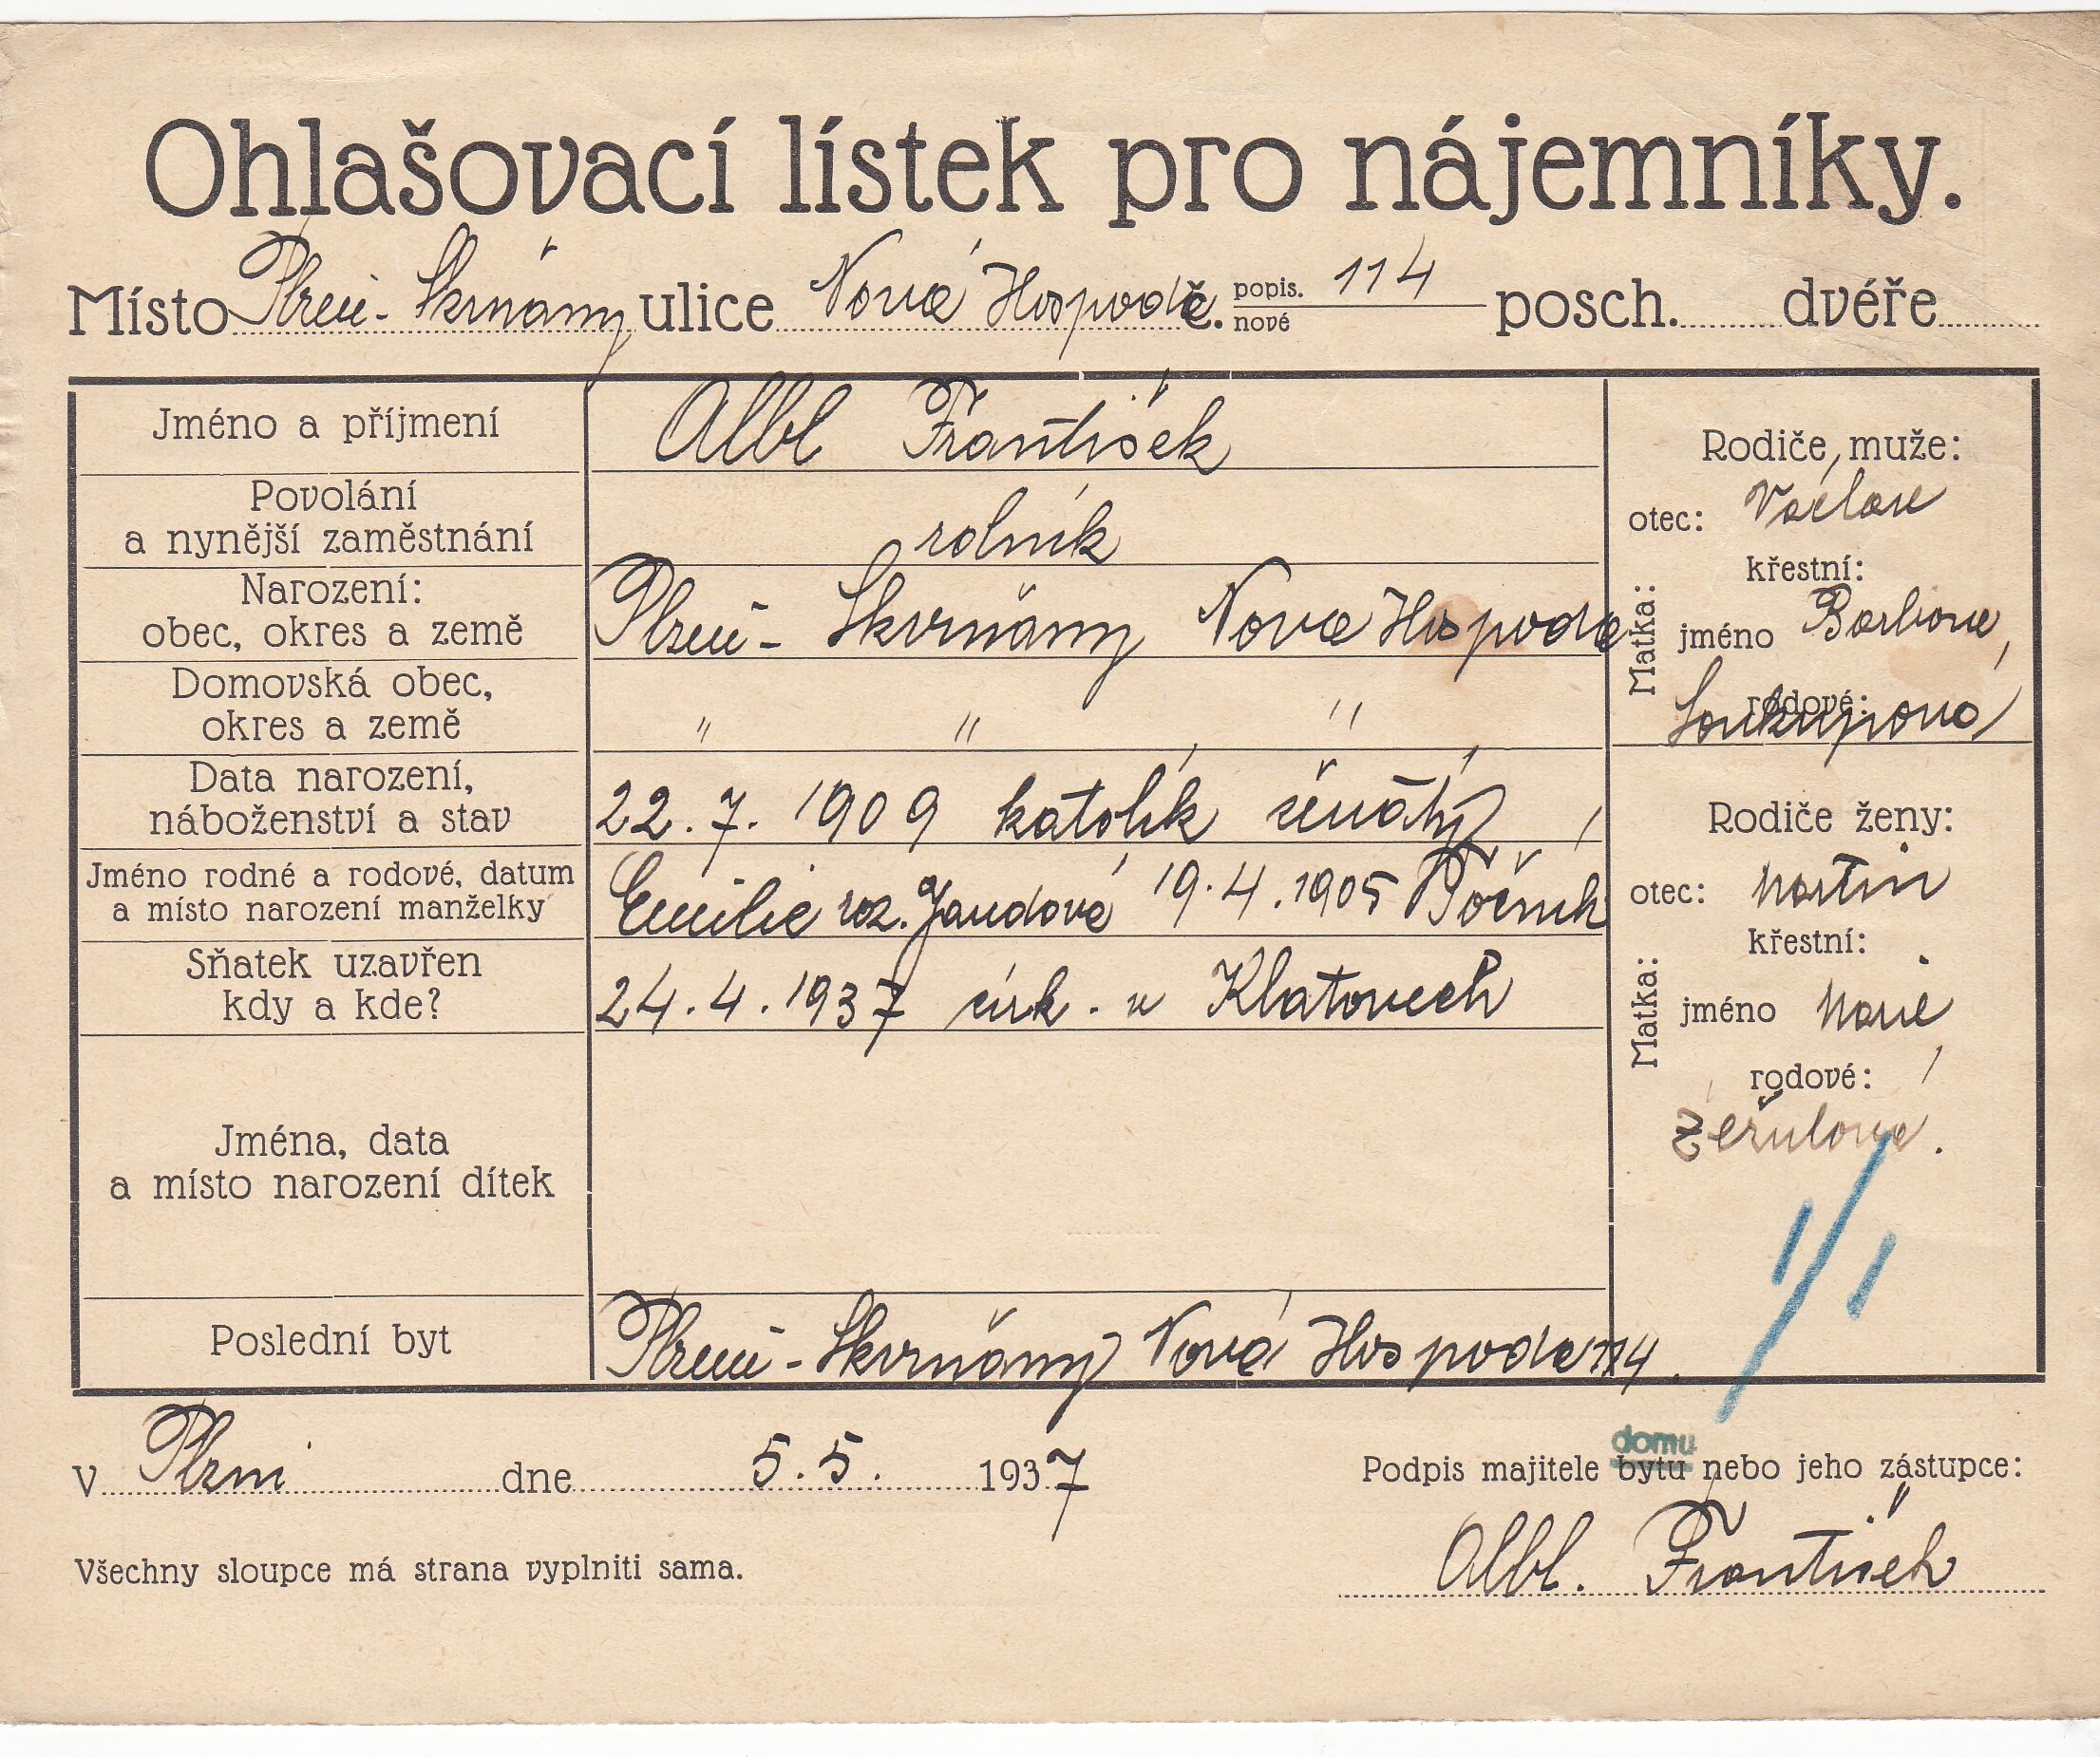 Ohlašovací lístek pro nájemníky.
Místo Plzeň - Skvrňany ulice Nová Hospoda č. popis. 114 posch. dvéře
nové
Jméno a příjmení Albl František
Povolání
a nynější zaměstnání rolník
Narození:
obec, okres a země Plzeň - Skvrňany Nová Hospoda
Domovská obec,
okres a země " " "
Data narození,
náboženství a stav 22. 7. 1909 katolík ženatý
Jméno rodné a rodové, datum
a místo narození manželky Emilie roz. Jandová 19. 4. 1905 Točník
Sňatek uzavřen
kdy a kde? 24. 4. 1937 círk. v Klatovech
Jména, data
a místo narození dítek
Poslední byt Plzeň - Skvrňany Nová Hospoda 114.
Rodiče muže:
otec: Václav
Matka:
křestní:
jméno Barbora
rodové:
Soukupová
Rodiče ženy:
otec: Martin
Matka:
křestní:
jméno Marie
rodové:
1/1
domu
v Plzni dne 5. 5. 1937 Podpis majitele bytu nebo jeho zástupce:
Všechny sloupce má strana vyplniti sama. Albl. František